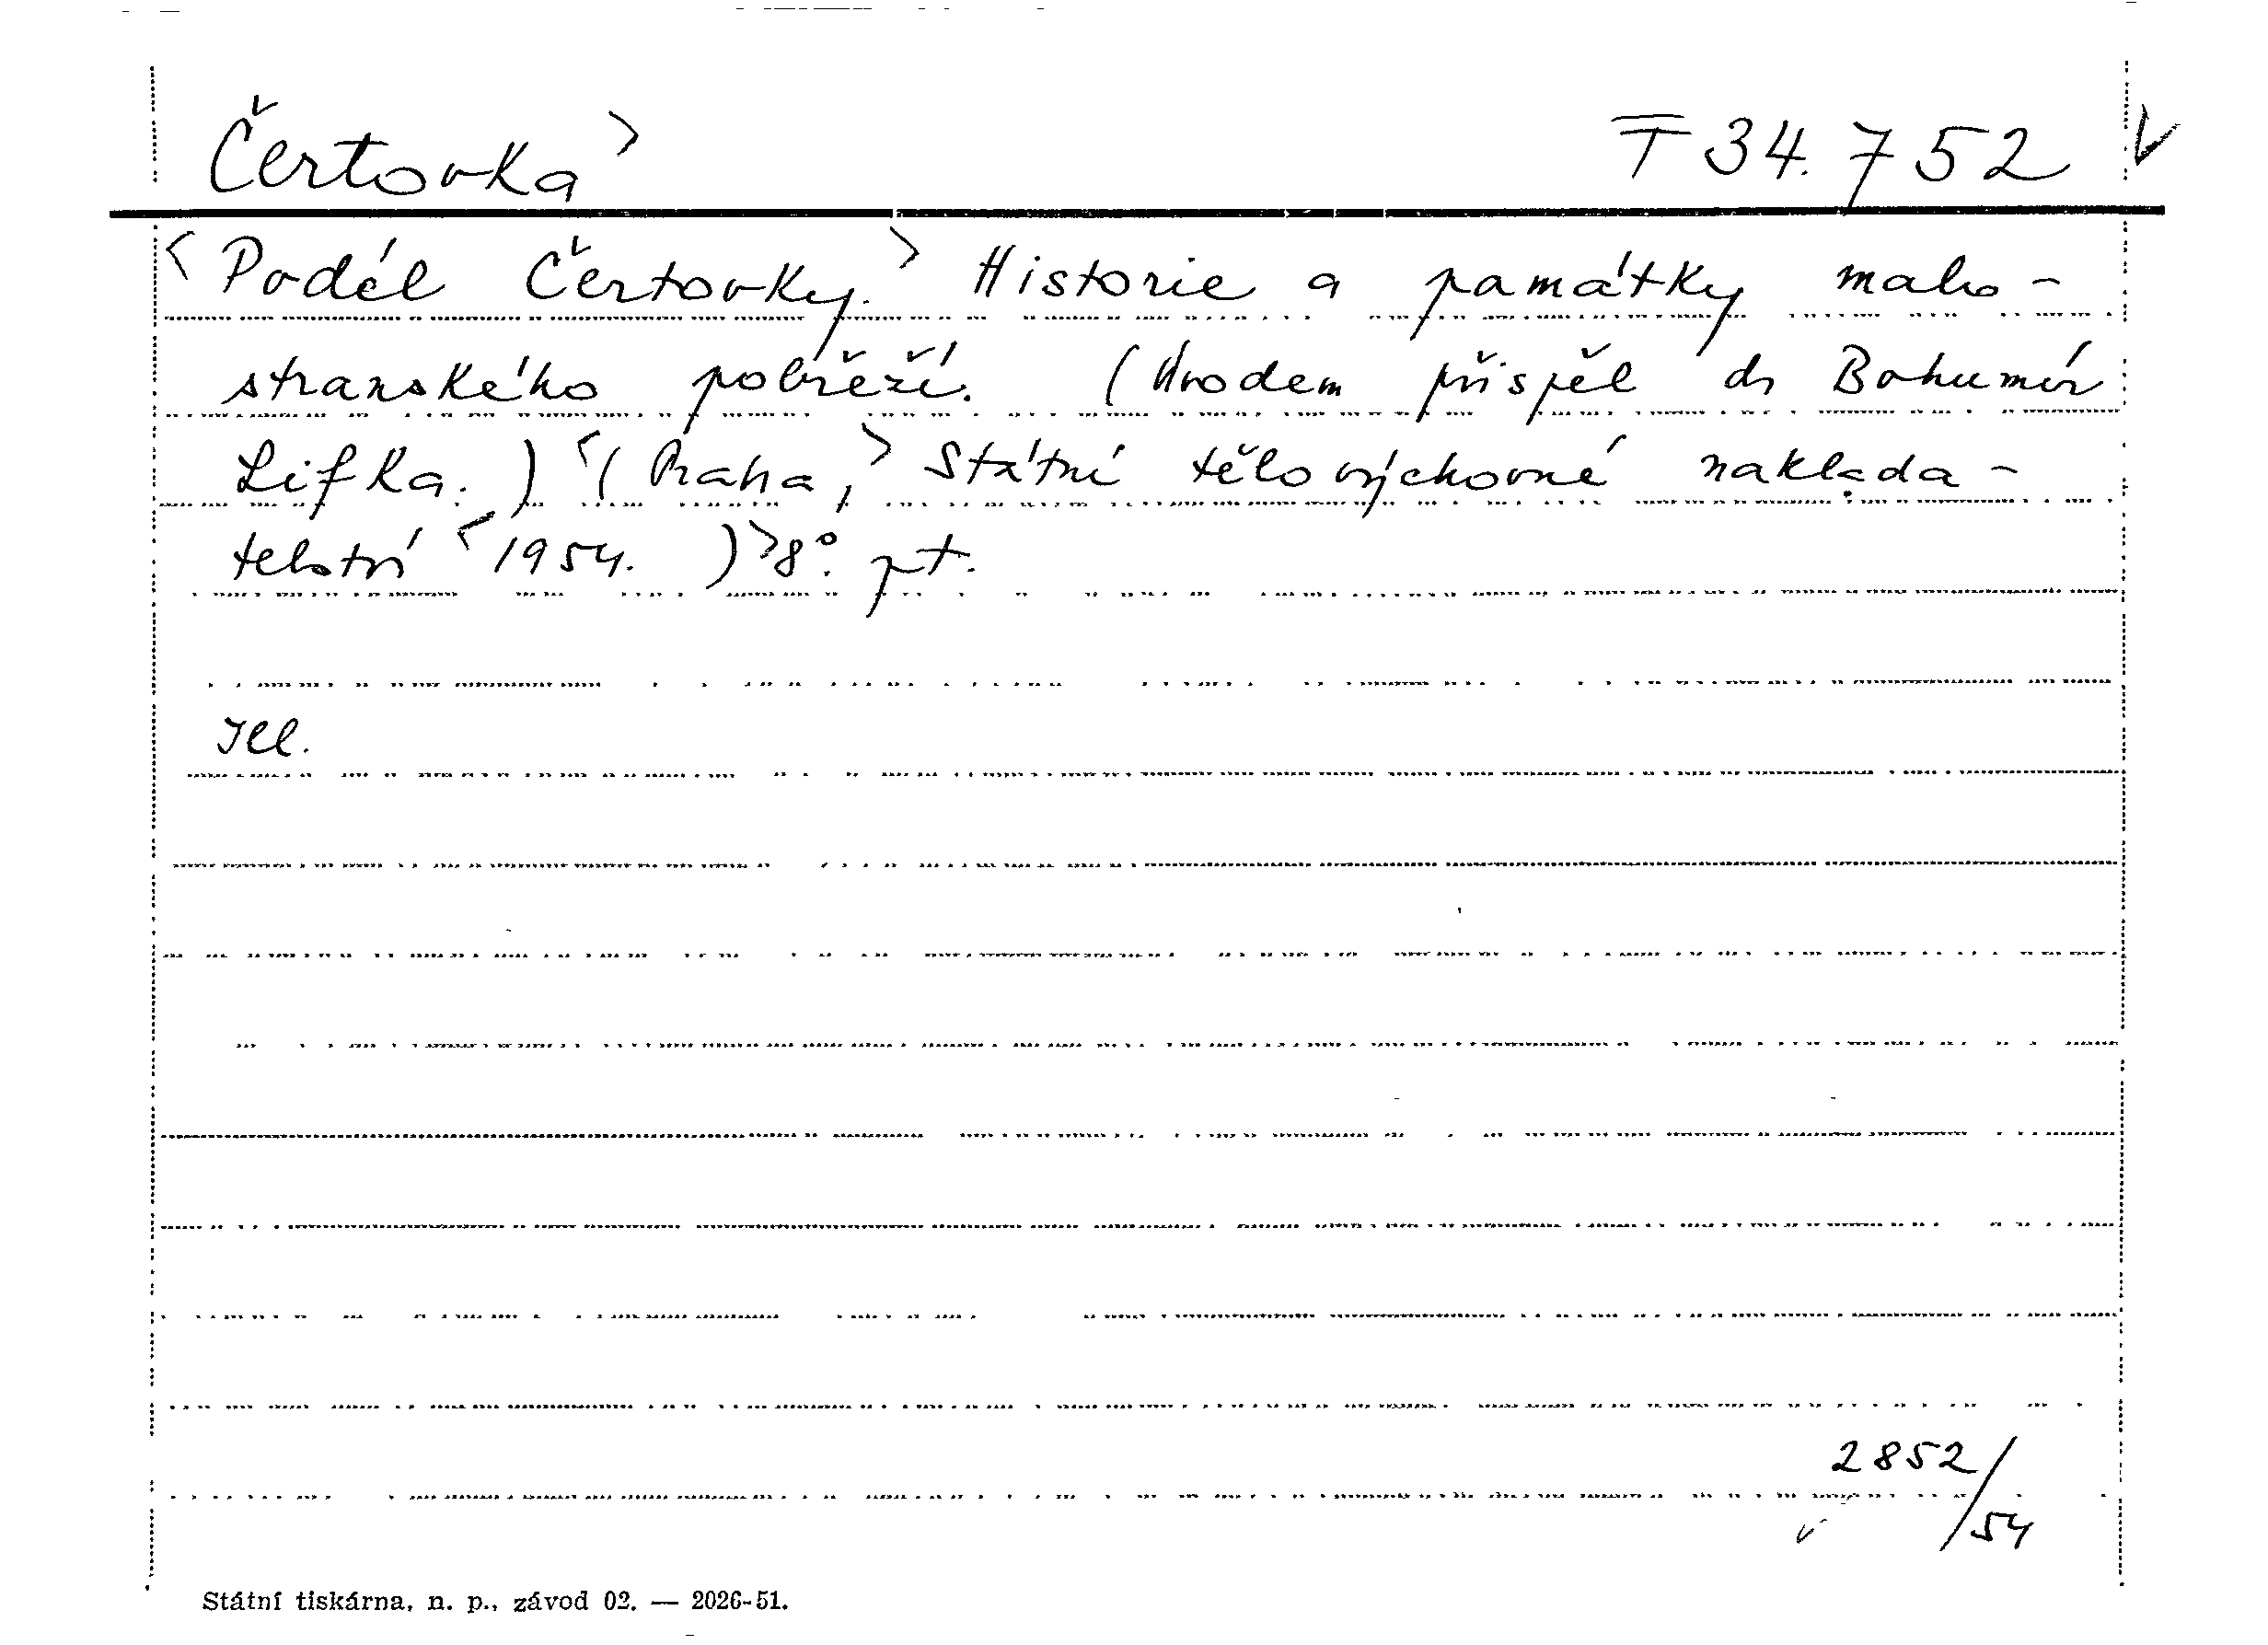 Čertovka > T 34.752 V
< Podél Čertovky. > Historie a památky malo-
stranského pobřeží. (Úvodem přispěl dr Bohumír
Lifka.) < (Praha, > Státní tělovýchovné naklada-
telství < 1954. ) > 8°. pt.
Ill.
2852/54
v
Státní tiskárna, n. p., závod 02. — 2026-51.